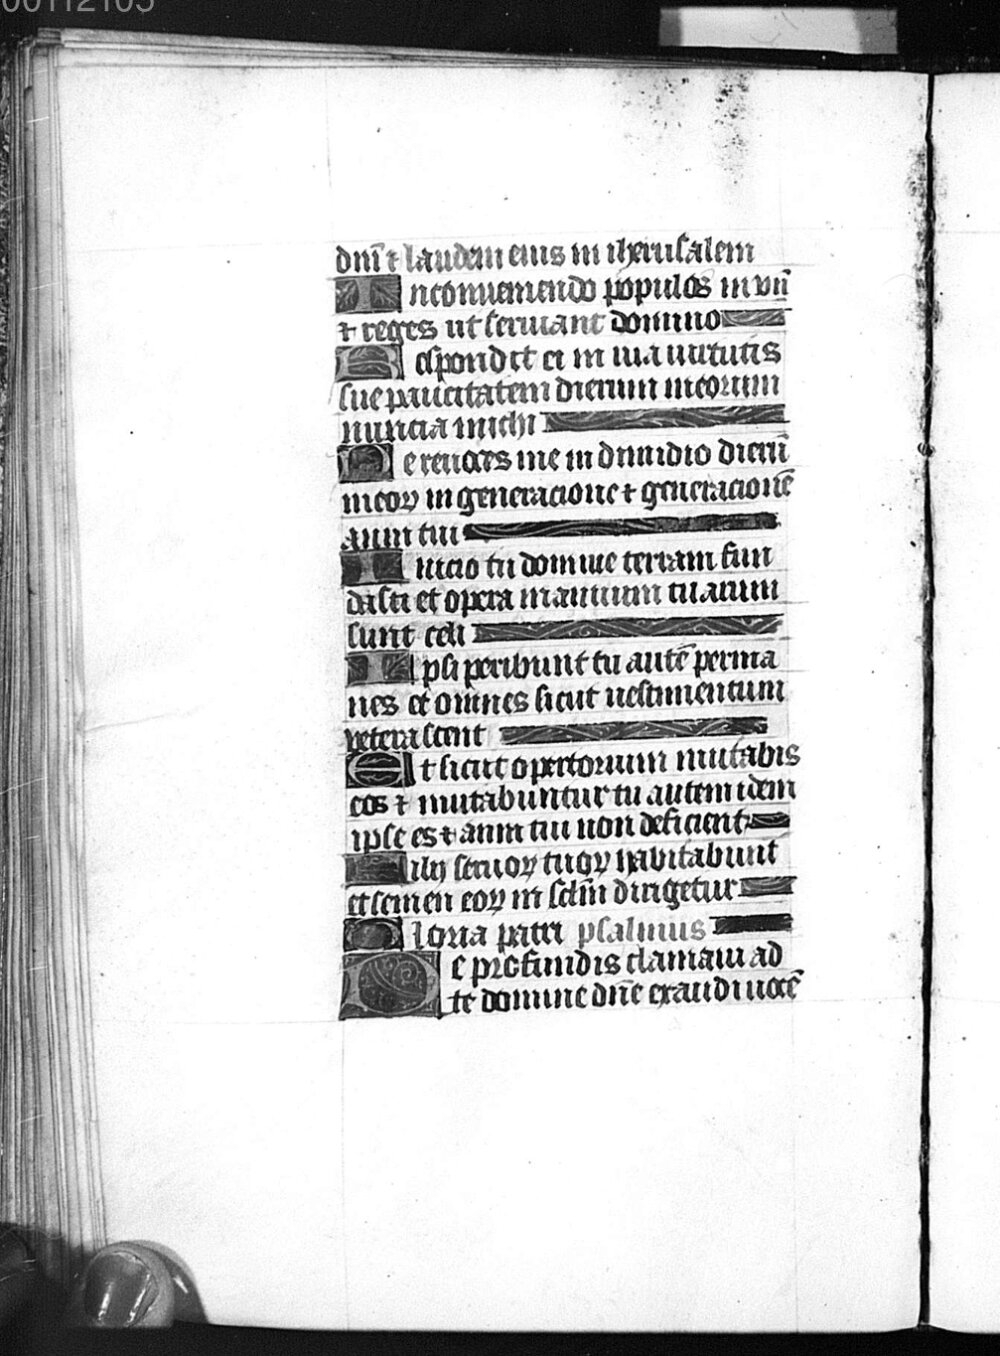 00112103
dnī ⁊ laudem eius in iherusalem
In conueniendo populos in vnū
⁊ reges ut seruiant domino
Respondit ei in uia uirtutis
sue paucitatem dierum meorum
nuncia michi
Ne reuoces me in dimidio dierū
meoꝝ in generacione ⁊ generacionē
anni tui
Inicio tu domine terram fun
dasti et opera manuum tuarum
sunt celi
Ipsi peribunt tu autē perma
nes et omnes sicut uestimentum
veterascent
Et sicut opertorium mutabis
eos ⁊ mutabuntur tu autem idem
ipse es ⁊ anni tui non deficient
Filij seruoꝝ tuoꝝ habitabunt
et semen eoꝝ in sclm̄ dirigetur
Gloria patri psalmus
De profundis clamaui ad
te domine dn̄e exaudi uocē